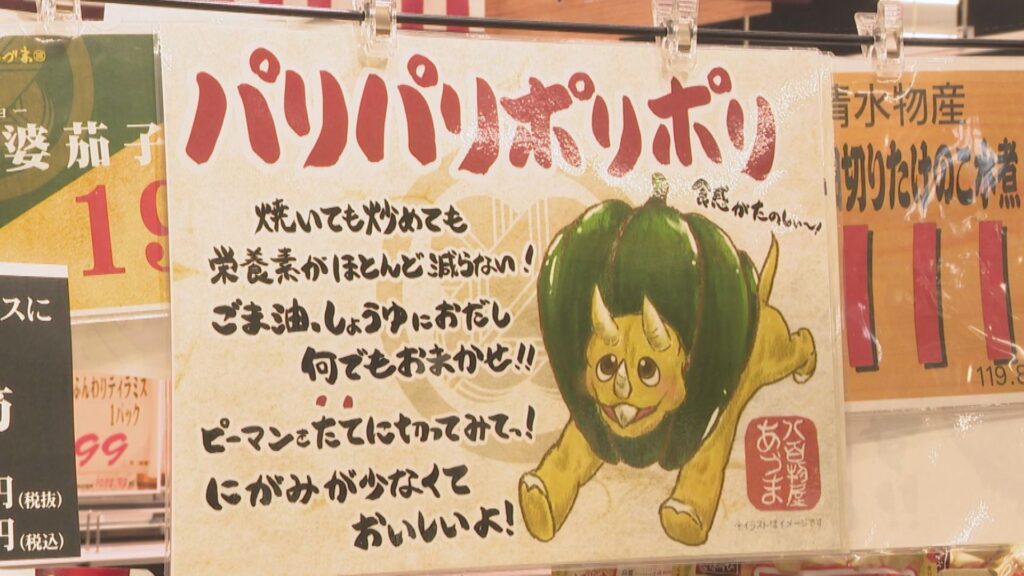 パリパリポリポリ
食感がたのしぃ〜!
焼いても炒めても
栄養素がほとんど減らない!
ごま油、しょうゆにおだし
何でもおまかせ!!
ピーマンをたてに切ってみてっ!
にがみが少なくて
おいしいよ!
八百物屋
あづま
※イラストはイメージです
婆茄子
19
スに
円(税抜)
円(税込)
ふんわりティラミス
1パック
99
清水物産
切りたけのこ水煮
111
119.8